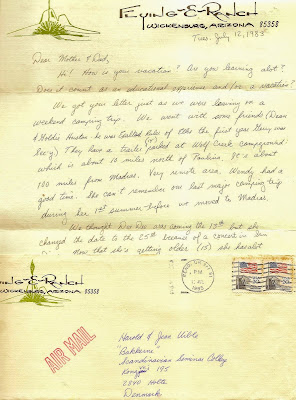 FLYING-E-RANCH
WICKENBURG, ARIZONA 85358
Tues. July 12, 1983
Dear Mother & Dad,
Hi! How is your vacation? Are you learning alot?
Does it count as an educational experience and/or a vacation?
We got your letter just as we were leaving on a
weekend camping trip. We went with some friends (Dean
& Goldie Huston he was Exalted Ruler of Elks the first year Henry was
Sec'y) They have a trailer parked at Wolf Creek campground
which is about 10 miles north of It's about
100 miles from Madras. Very remote area. Wendy had a
good time. She can't remember our last major camping trip
during her 1st summer before we moved to Madras.
We thought Dee Dee was coming the 15th but she
changed the date to the 25th because of a concert in
Now that she's getting older (15) she has alot
FLYING-E-RANCH
ARIZONA 85358
PM
1983
AIR MAIL
Harold & Jean
Scandinavian Seminar College
195
2840 Holte
Denmark